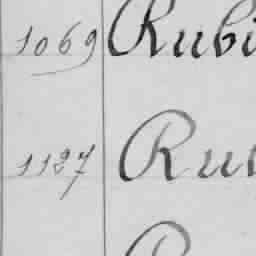 1069 Rubi
1127 Ru